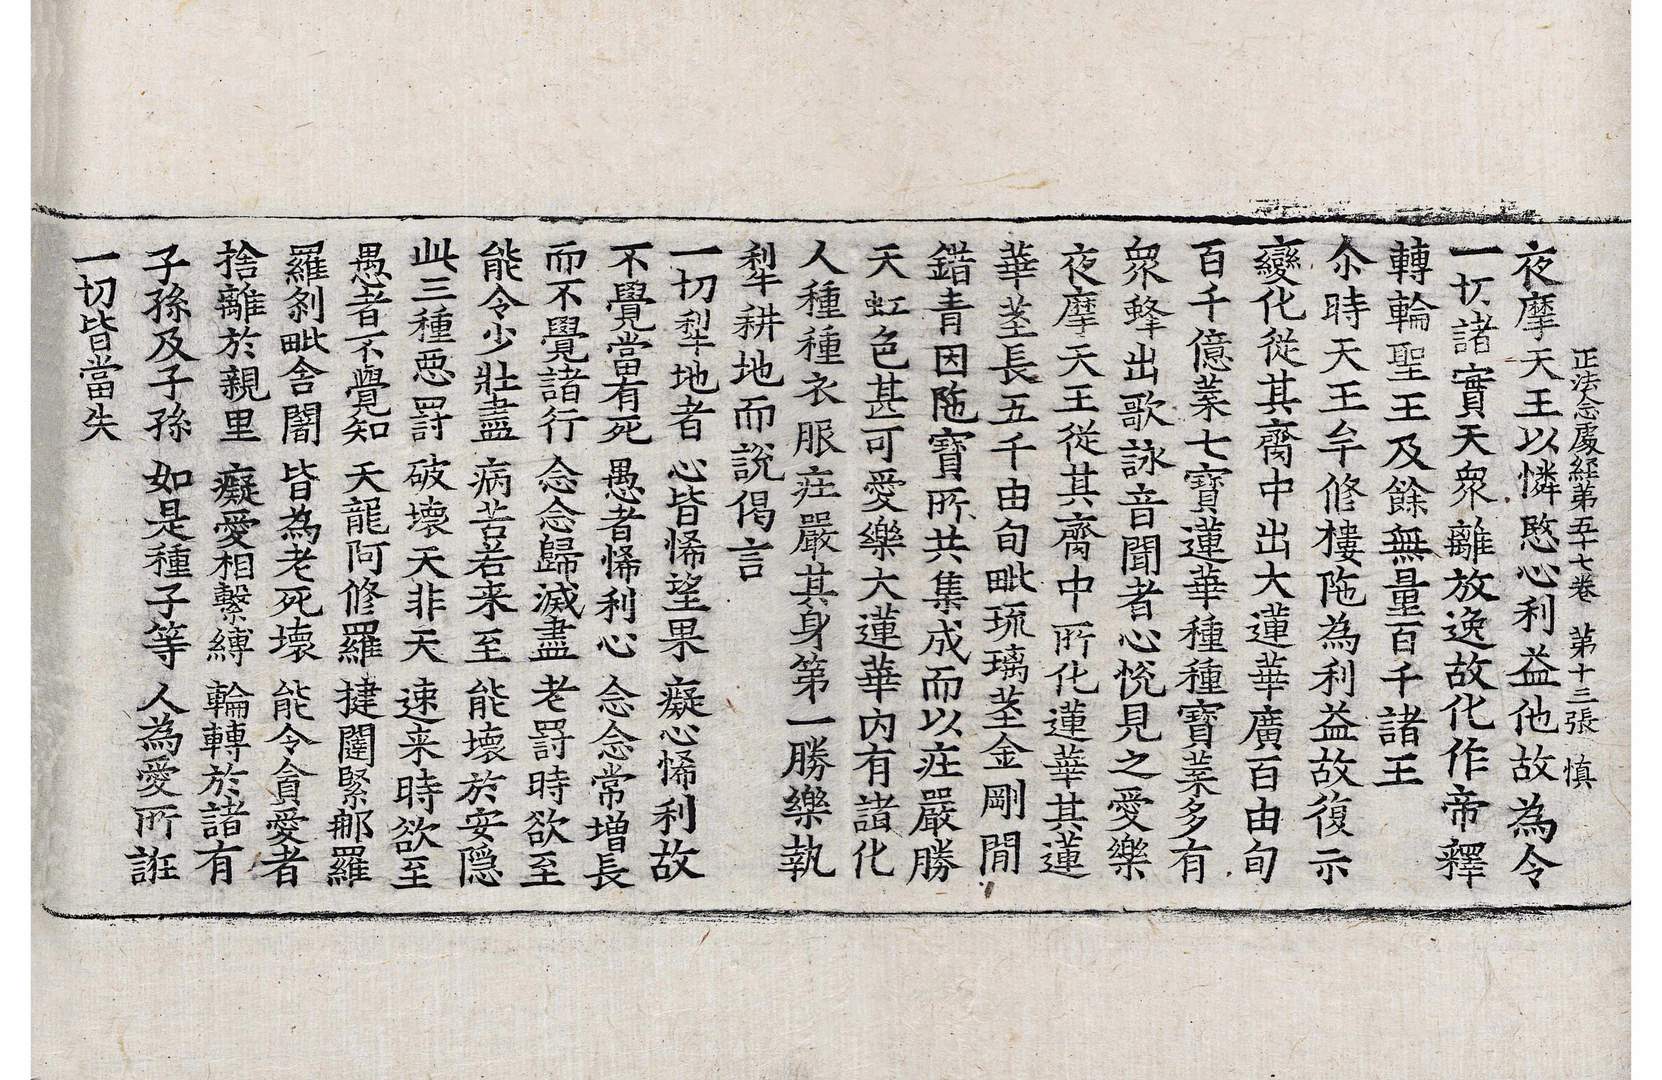 正法念處經第五十七卷 第十三張 慎
夜摩天王以憐愍心利益他故為令
一切諸實天衆離放逸故化作帝釋
轉輪聖王及餘無量百千諸王
尒時天王牟修樓陁為利益故復示
變化從其齎中出大蓮華廣百由旬
百千億葉七寶蓮華種種寶葉多有
衆蜂出歌詠音聞者心恱見之愛樂
夜摩天王從其齎中所化蓮華其蓮
華莖長五千由旬毗琉璃莖金剛間
錯青因陁寶所共集成而以庄嚴勝
天虹色甚可愛樂大蓮華内有諸化
人種種衣服庄嚴其身第一勝樂執
犁耕地而說偈言
一切犁地者 心皆悕望果 癡心悕利故
不覺當有死 愚者悕利心 念念常增長
而不覺諸行 念念歸滅盡 老罸時欲至
能令少壯盡 病苦若来至 能壞於安隠
此三種惡罸 破壞天非天 速来時欲至
愚者不覺知 天龍阿修羅 揵闥緊那羅
羅剎毗舎闍 皆為老死壞 能令貪愛者
捨離於親里 癡愛相繫縛 輪轉於諸有
子孫及子孫 如是種子等 人為愛所誑
一切皆當失